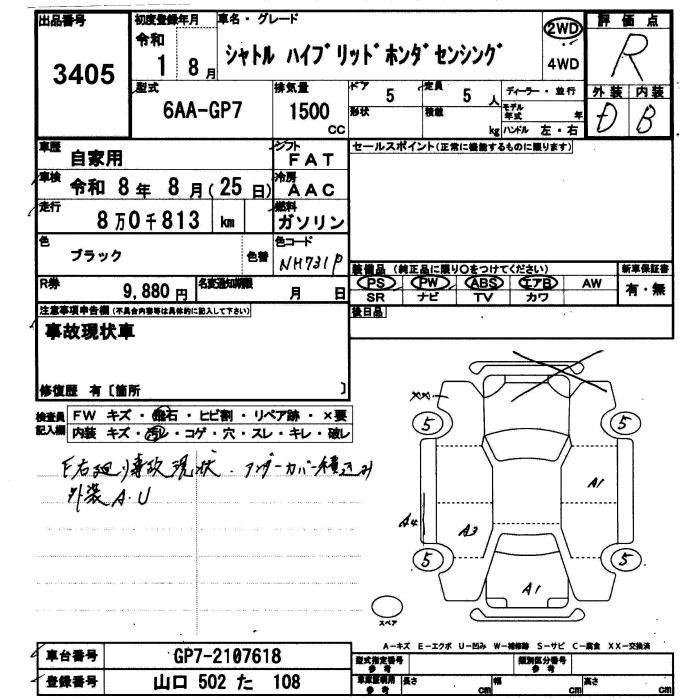 出品番号
3405
初度登録年月
令和
1 8月
車名・グレード
シャトル ハイブリッドホンダセンシング
2WD
4WD
評価点
R
外装 内装
D B
型式
6AA-GP7
排気量
1500
CC
ドア
5
定員
5 人
形状
積載
kg
ディーラー・並行
モデル年式 年
ハンドル 左・右
車歴
自家用
シフト
FAT
車検
令和 8年 8月(25日)
冷房
AAC
走行
8万0千813 km
燃料
ガソリン
色
ブラック
色替
色コード
NH731P
R券
9,880円
名変通知期限
月 日
セールスポイント(正常に機能するものに限ります)
装備品 (純正品に限り○をつけてください)
PS PW ABS エアB AW
SR ナビ TV カワ
新車保証書
有・無
後日品
注意事項申告欄(不具合内容等は具体的に記入して下さい)
事故現状車
修復歴 有〔箇所 〕
検査員記入欄
FW キズ・飛石・ヒビ割・リペア跡・×要
内装 キズ・汚レ・コゲ・穴・スレ・キレ・破レ
F右廻り事故現状.アンダーカバー積込み
外装A.U
XX
5 5
A1
A4
A3
5 5
A1
スペア
A-キズ E-エクボ U-凹み W-補修跡 S-サビ C-腐食 XX-交換済
車台番号
GP7-2107618
登録番号
山口 502 た 108
型式指定番号
参考
類別区分番号
参考
車庫証明用
参考
長さ cm 幅 cm 高さ cm